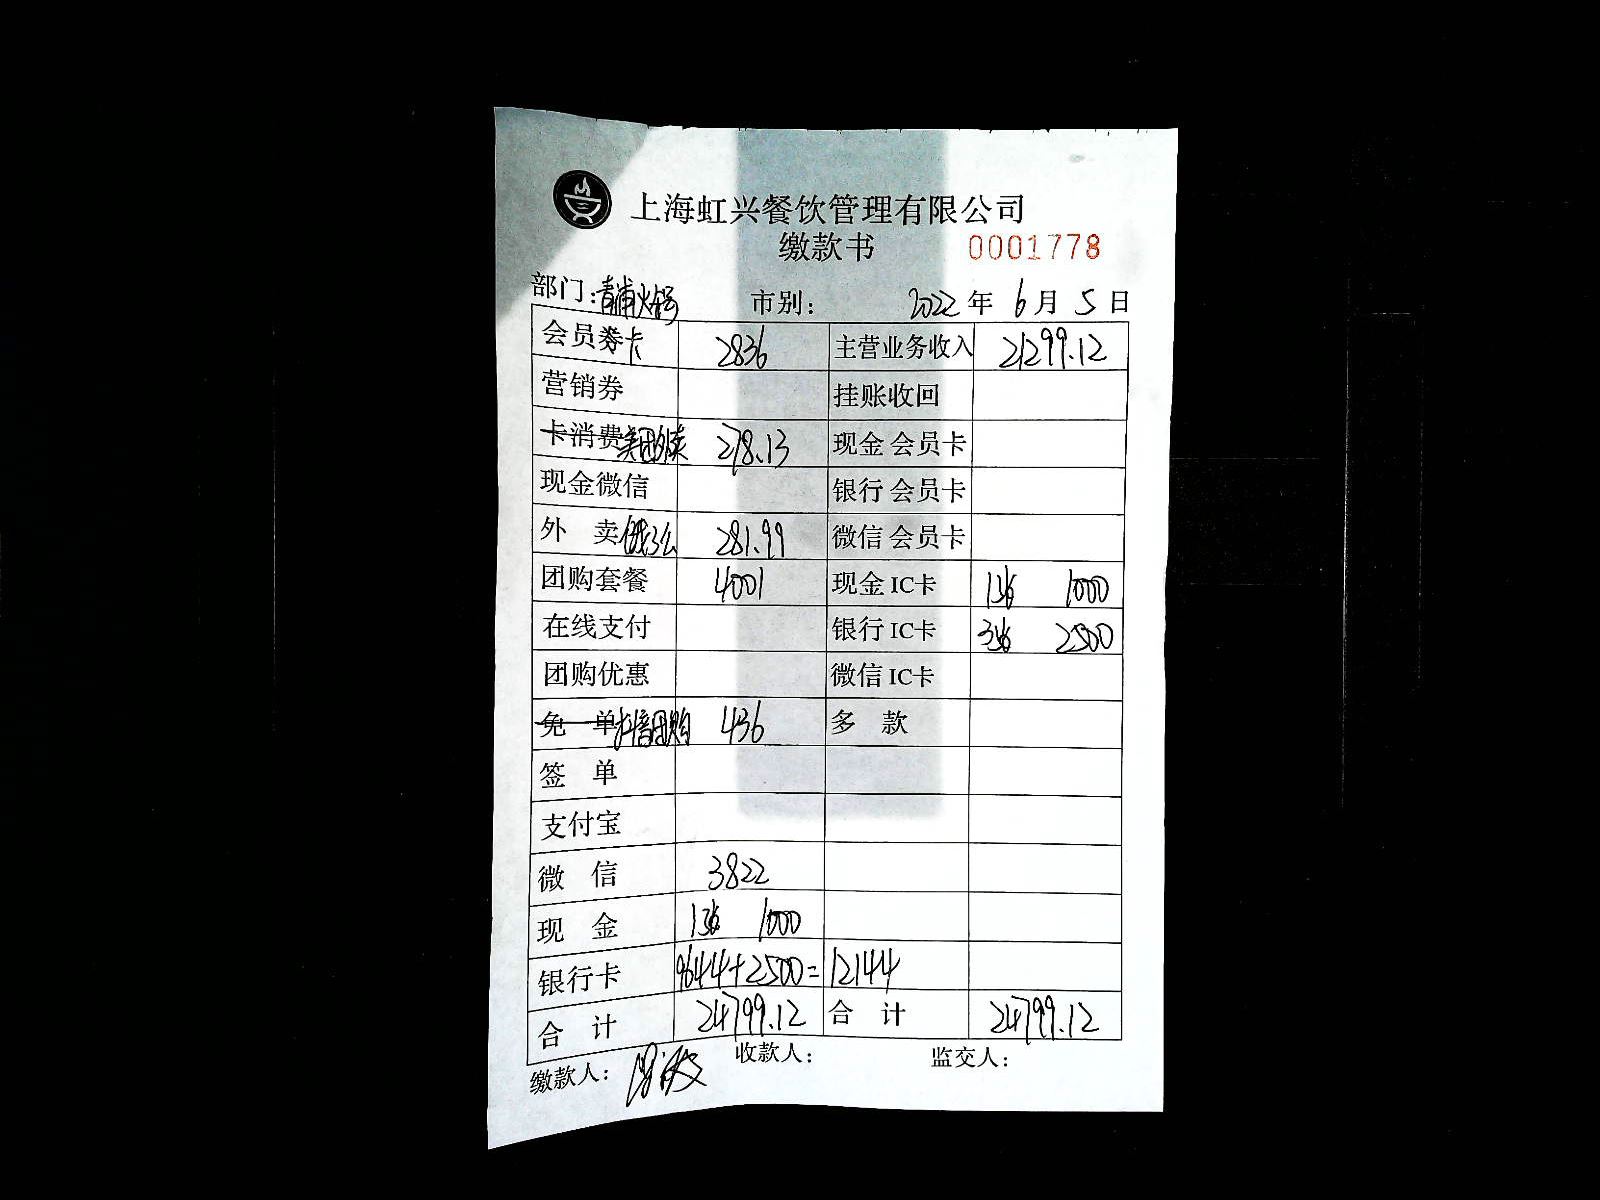 上海虹兴餐饮管理有限公司
缴款书 0001778
部门:青浦火锅 市别: 2022年6月5日
会员券卡 2836 主营业务收入 21299.12
营销券 挂账收回
卡消费美团外卖 278.13 现金会员卡
现金微信 银行会员卡
外卖饿了么 281.99 微信会员卡
团购套餐 4001 现金IC卡 1张 1000
在线支付 银行IC卡 3张 2500
团购优惠 微信IC卡
免单抖音团购 436 多款
签单
支付宝
微信 3822
现金 1张 1000
银行卡 9644+2500=12144
合计 24799.12 合计 24799.12
缴款人: 收款人: 监交人: